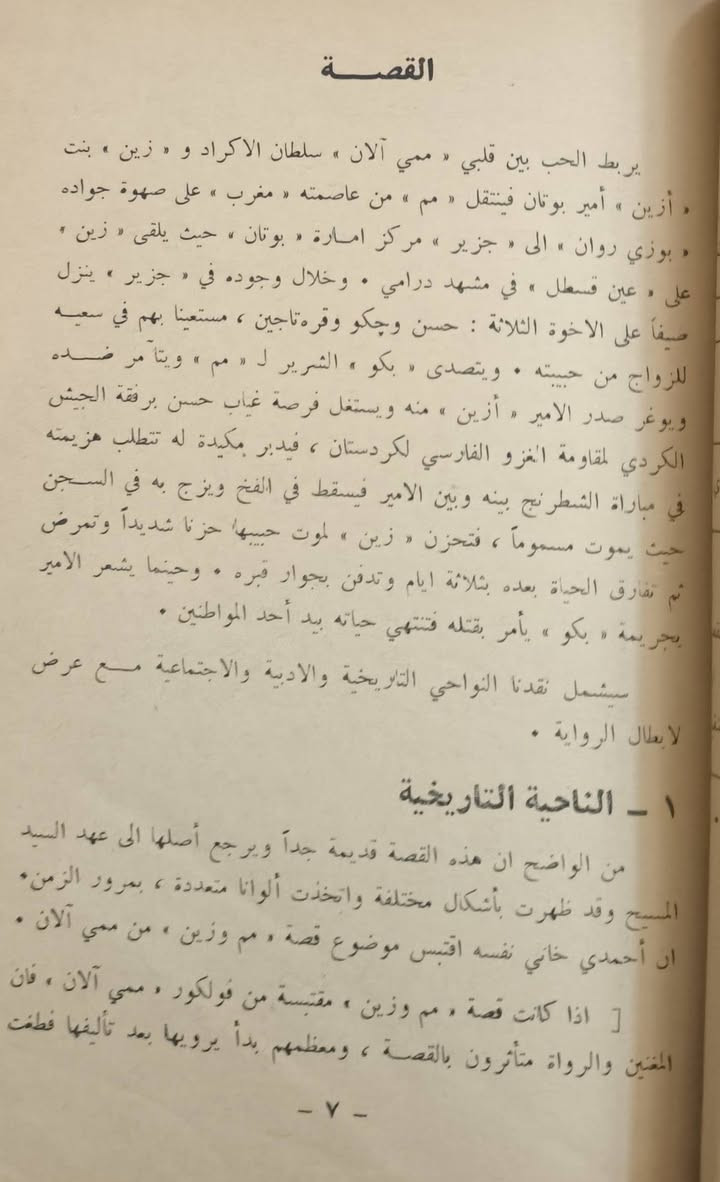 القصـــة
يربط الحب بين قلبي « ممي آلان » سلطان الاكراد و « زين » بنت
« أزين » أمير بوتان فينتقل « مم » من عاصمته « مغرب » على صهوة جواده
« بوزي روان » الى « جزير » مركز امـارة « بوتان » حيث يلقى « زين »
على « عين قسطل » في مشهد درامي • وخلال وجوده في « جزير » ينزل
ضيفاً على الاخوة الثلاثة : حسن وچكو وقره‌تاجين ، مستعينا بهم في سعيـه
للزواج من حبيبته • ويتصدى « بكو » الشرير لـ « مم » ويتآمر ضـــده
ويوغر صدر الامير « أزين » منه ويستغل فرصة غياب حسن برفقة الجيش
الكردي لمقاومة الغزو الفارسي لكردستان ، فيدبر مكيدة له تتطلب هزيمته
في مباراة الشطرنج بينه وبين الامير فيسقط في الفخ ويزج به في السـجن
حيث يموت مسموماً ، فتحزن « زين » لموت حبيبها حزنا شديداً وتمرض
ثم تفارق الحياة بعده بثلاثة ايام وتدفن بجوار قبره • وحينما يشعر الامير
بجريمة « بكو » يأمر بقتله فتنتهي حياته بيد أحد المواطنين •
سيشمل نقدنا النواحي التاريخية والادبية والاجتماعية مـــع عرض
لابطال الرواية •
١ – الناحية التاريخية
من الواضح ان هذه القصة قديمة جداً ويرجع أصلها الى عهد السيد
المسيح وقد ظهرت بأشكال مختلفة واتخذت ألوانا متعددة ، بمرور الزمن•
ان أحمدي خاني نفسه اقتبس موضوع قصة « مم وزين » من ممي آلان •
[ اذا كانت قصة « مم وزين » مقتبسة من فولكور « ممي آلان » فان
المغنين والرواة متأثرون بالقصـة ، ومعظمهم بدأ يرويها بعد تأليفها فطغت
– ٧ –